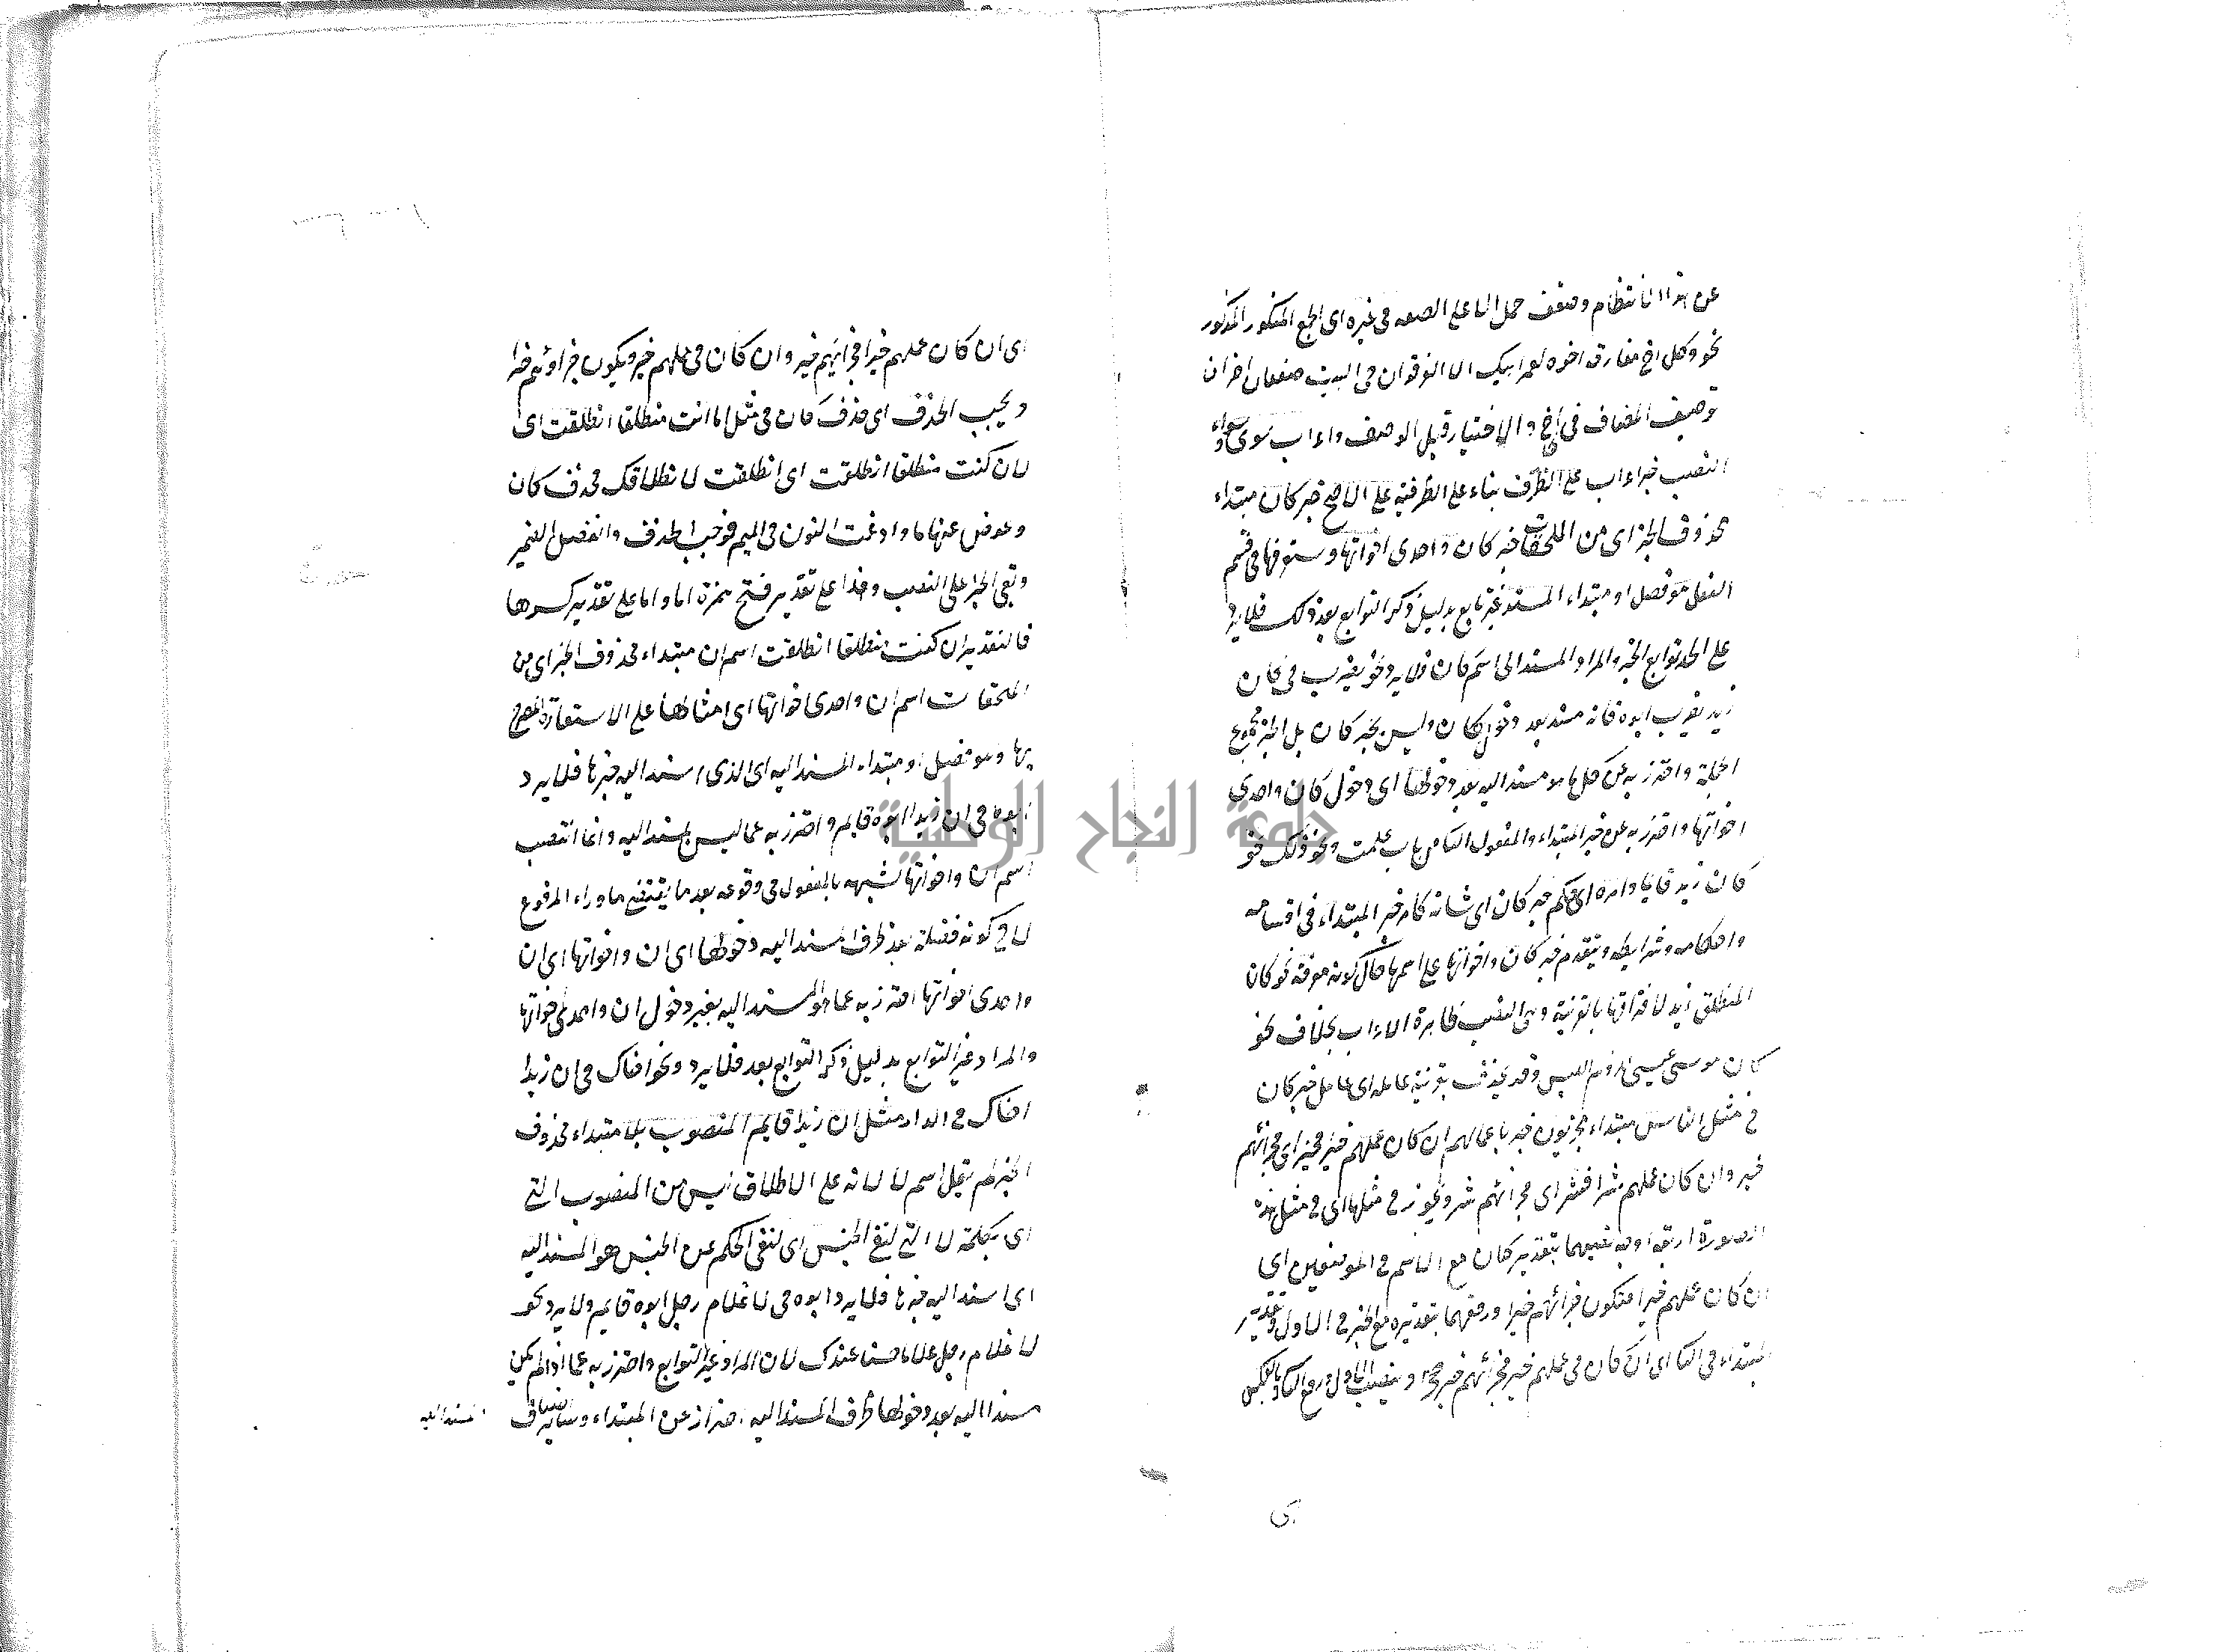 عن هذا الانتظام وضعف حمل الا على الصفه فى غيره اى الجمع المنكور المذكور
نحو وكل اخ مفارقه اخوه لعمر ابيك الا الفرقدان فى البيت ضعفان اخران
توصيف المضاف فى اخ والاختيار قبل الوصف واعراب سوى وسواء
النصب خبر اعراب على الظرف بناء على الظرفية على الاصح خبر كان مبتداء
محذوف الخبر اى من الملحقات خبر كان واحدى اخواتها وستعرفها فى قسم
الفعل هو فصل او مبتداء المسند غير تابع بدليل ذكر التوابع بعد ذلك فلا يرد
على الحد توابع الخبر والمراد المسند الى اسم كان فلا يرد نحو يضرب فى كان
زيد يضرب ابوه فانه مسند بعد دخول كان وليس بخبر كان بل الخبر مجموع
الجملة واحترز به عن كل ما هو مسند اليه بعد دخولها اى دخول كان واحدى
اخواتها واحترز به عن خبر المبتداء والمفعول الثانى من باب علمت ونحو ذلك نحو
كان زيد قايما وامره اى حكم خبر كان اى شانه كامر خبر المبتداء فى اقسامه
واحكامه وشرايطه ويتقدم خبر كان واخواتها على اسمها حال كونه معرفة نحو كان
المنطلق زيد لافتراقها بالقرنية وهى النصب ظاهرة الاعراب بخلاف نحو
كان موسى عيسى للزوم اللبس وقد يحذف بقرنية عامله اى عامل خبر كان
فى مثل الناس مبتداء مجزيون خبره باعمالهم ان كان عملهم خيرا فخير اى فجزائهم
خير وان كان عملهم شرا فشر اى فجزائهم شر ويجوز فى مثلها اى فى مثل هذه
الصورة اربعة اوجه نصبهما بتقدير كان مع الاسم فى الموضعين اى
ان كان عملهم خيرا فيكون جزائهم خيرا ورفعهما بتقديره مع الخبر فى الاول وتقدير
المبتداء فى الثانى اى ان كان فى عملهم خير فجزائهم خير ونصب الاول ورفع الثانى وبالعكس
اى
اى ان كان عملهم خيرا فجزائهم خير وان كان فى عملهم خير فيكون جزاؤهم خيرا
ويجب الحذف اى حذف كان فى مثل اما انت منطلقا انطلقت اى
لان كنت منطلقا انطلقت اى انطلقت لانطلاقك فحذف كان
وعوض عنها ما وادغمت النون فى الميم فوجب الحذف وانفصل الضمير
وبقى الخبر على النصب وهذا على تقدير فتح همزة اما واما على تقدير كسرها
فالتقدير ان كنت منطلقا انطلقت اسم ان مبتداء محذوف الخبر اى من
الملحقات اسم ان واحدى اخواتها اى امثالها على الاستعارة المصرح
بها وهو فصل او مبتداء المسند اليه اى الذى اسند اليه خبرها فلا يرد
ابوه فى ان زيدا ابوه قايم واحترز به عما ليس بمسند اليه وانما انتصب
اسم ان واخواتها لشبهه بالمفعول فى وقوعه بعد ما يقتضى ما وراء المرفوع
لا فى كونه فضلة بعد ظرف المسند اليه دخولها اى ان واخواتها اى ان
واحدى اخواتها احترز به عما هو المسند اليه بغير دخول ان واحدى اخواتها
والمراد غير التوابع بدليل ذكر التوابع بعد فلا يرد ونحو اخاك فى ان زيدا
اخاك فى الدار مثل ان زيدا قايم المنصوب بلا مبتداء محذوف
الخبر لم يقل اسم لا لانه على الاطلاق ليس من المنصوب التى
اى بكلمة لا التى لنفى الجنس اى لنفى الحكم عن الجنس هو المسند اليه
اى اسند اليه خبرها فلا يرد ابوه فى لا غلام رجل ابوه قايم ولا يرد نحو
لا غلام رجل غلاما حسنا عندك لان المراد غير التوابع واحترز به عما اذا لم يكن
مسندا اليه بعد دخولها ظرف المسند اليه احتراز عن المبتداء وسايره مضاف
المسند اليه
جامعة النجاح الوطنية